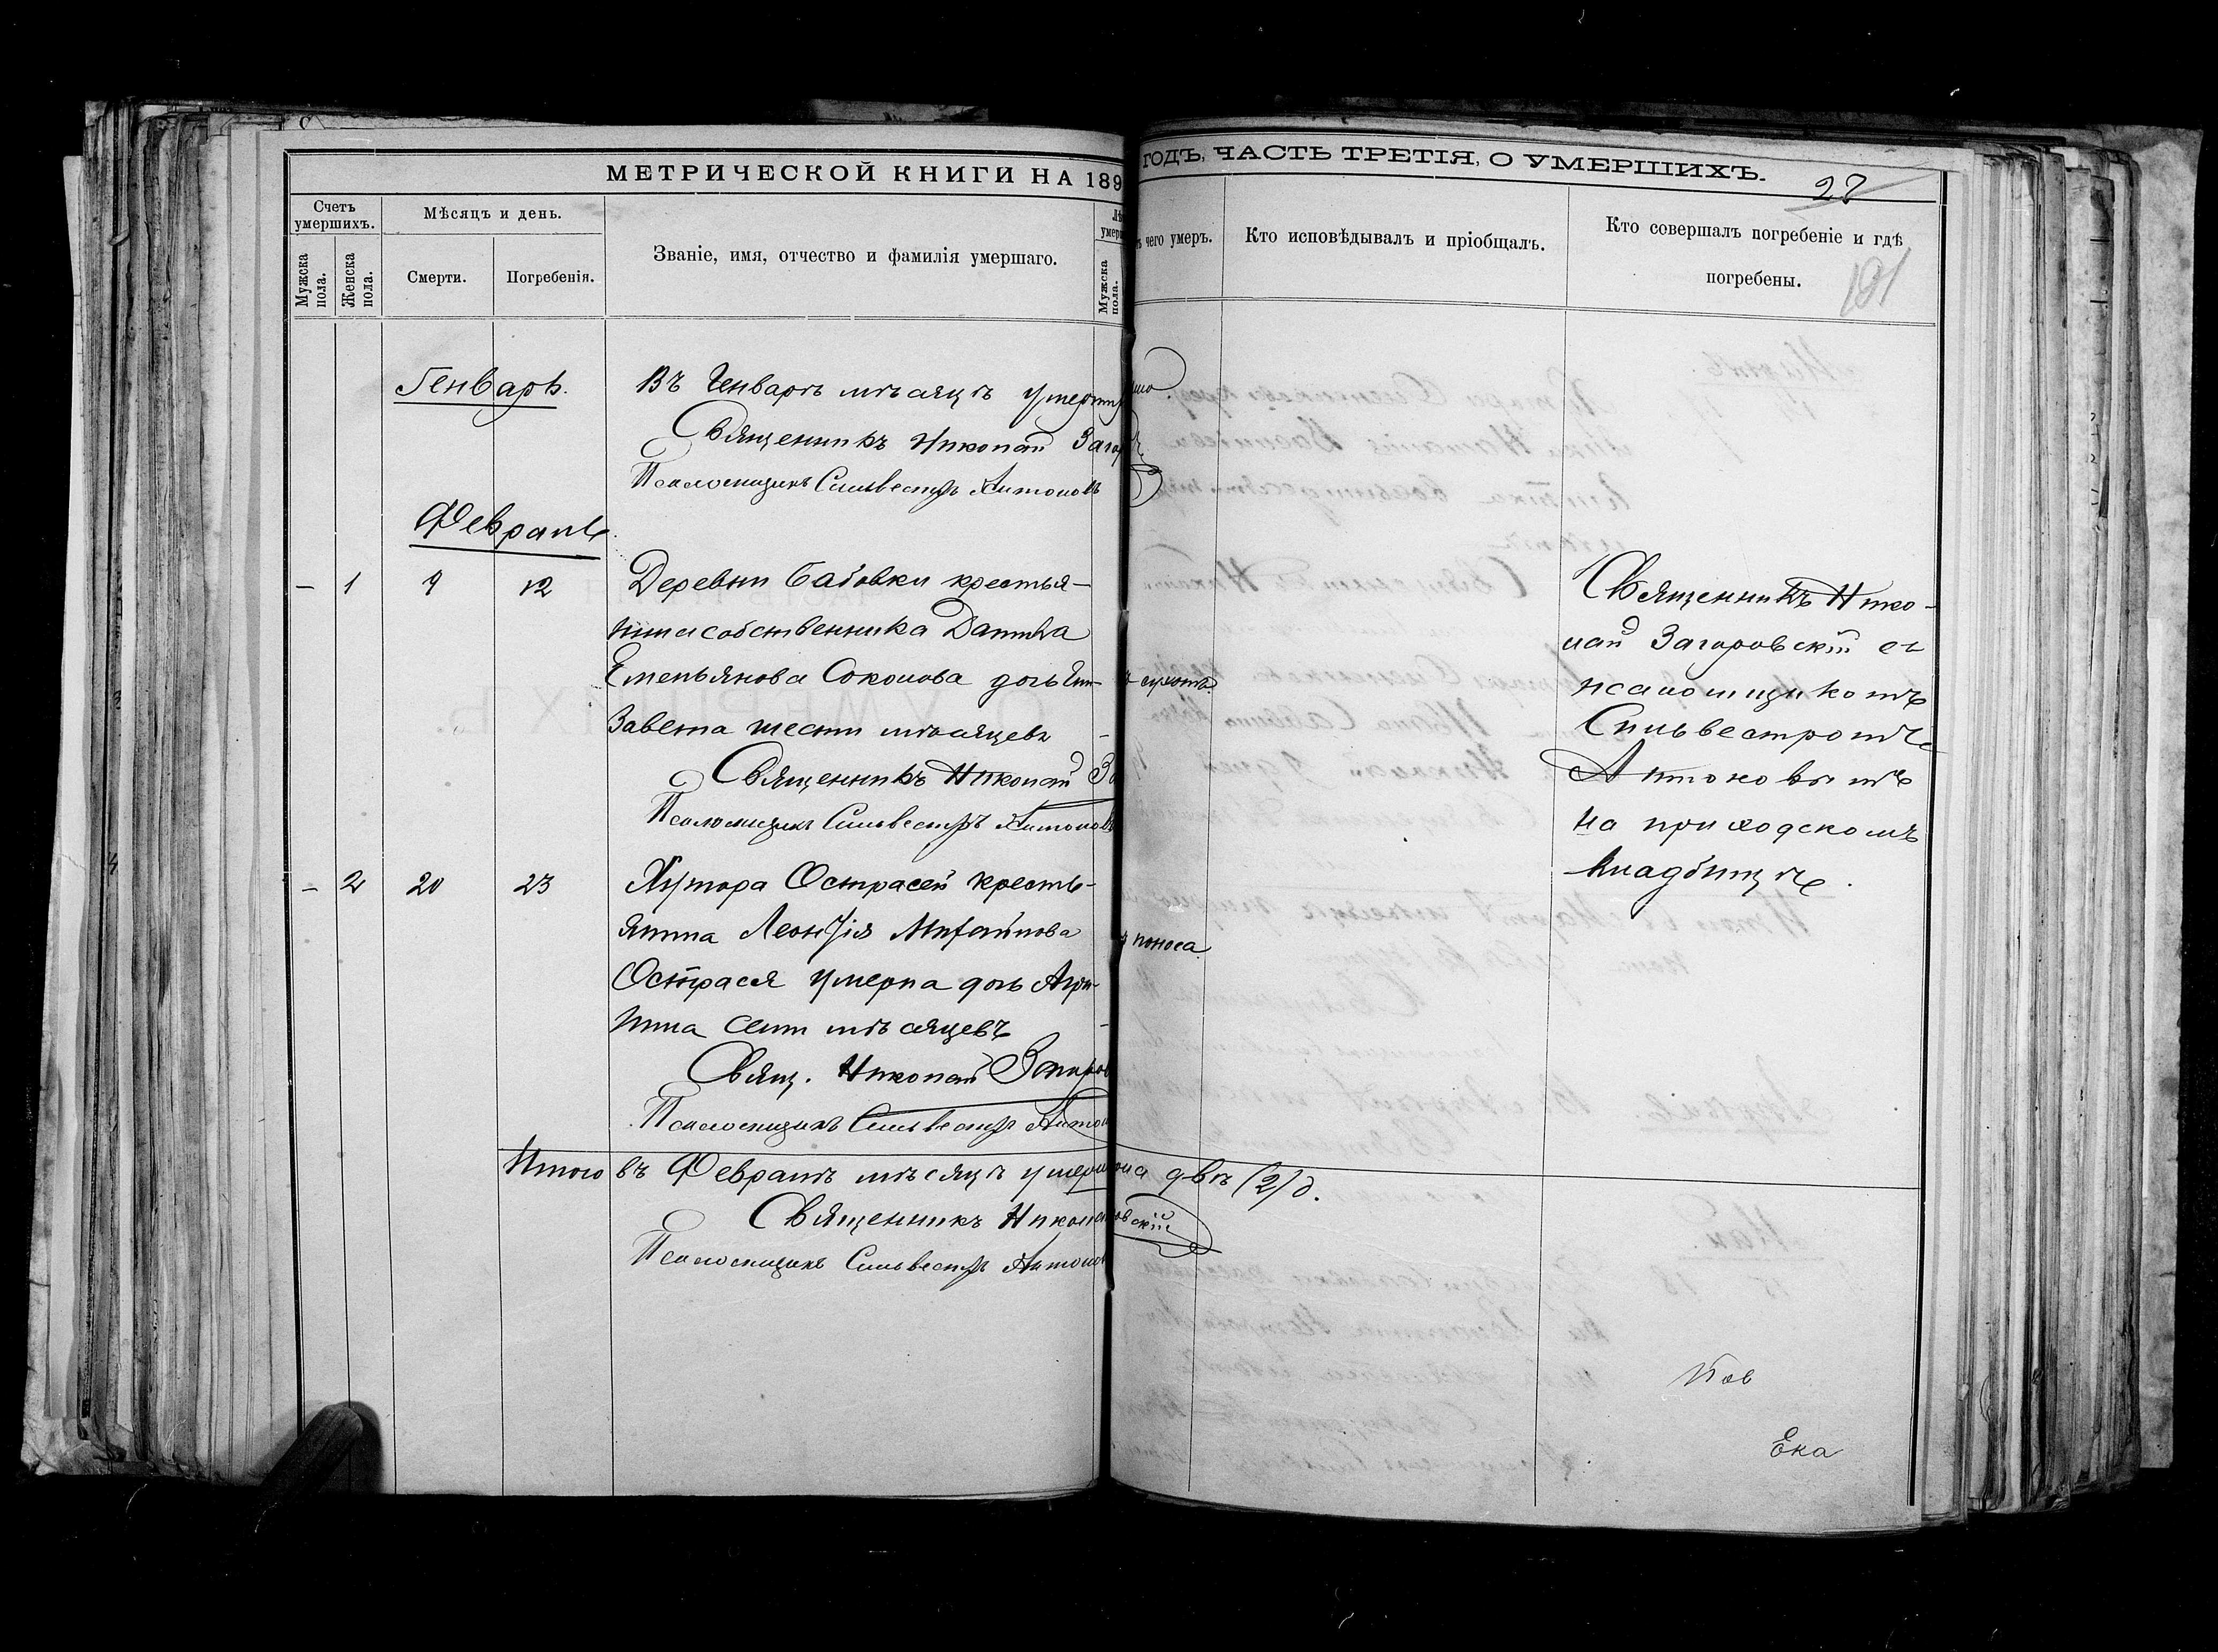 МЕТРИЧЕСКОЙ КНИГИ НА 189
ГОДЪ, ЧАСТЬ ТРЕТІЯ, О УМЕРШИХЪ.
Счетъ умершихъ.
Мужска пола.
Женска пола.
Мѣсяцъ и день.
Смерти.
Погребенія.
Званіе, имя, отчество и фамилія умершаго.
Мужска пола.
чего умеръ.
Кто исповѣдывалъ и пріобщалъ.
Кто совершалъ погребеніе и гдѣ
погребены.
191
Генварь.
Въ Генварѣ мѣсяцѣ
Священникъ Николай
Псаломщикъ Сильвестръ Антоновъ
Февраль
— 1 9 12
Деревни Бабовки крестья-
нина собственника Данила
Емельянова Соколова дочь Ели-
завета шести мѣсяцевъ
Священникъ Николай
Псаломщикъ Сильвестръ Антоновъ
Священникъ Нико-
лай Загоровскій съ
псаломщикомъ
Сильвестромъ
Антоновымъ
на приходскомъ
кладбищѣ.
— 2 20 23
Хутора Острасей кресть-
янина Леонтія Михайлова
Острася умерла дочь Агри-
пина семи мѣсяцевъ
поноса
Свящ. Николай
Псаломщикъ Сильвестръ
Итого въ Февралѣ мѣсяцѣ умерло двѣ (2) д.
Священникъ
Псаломщикъ Сильвестръ
Пов
Ека